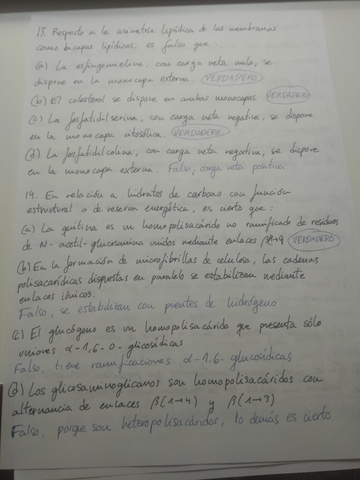 13. Respecto a la asimetría lipídica de las membranas
como bicapas lipídicas, es falso que:
(a) La esfingomielina, con carga neta nula, se
dispone en la monocapa externa. VERDADERO
(b) El colesterol se dispone en ambas monocapas. VERDADERO
(c) La fosfatidilserina, con carga neta negativa, se dispone
en la monocapa citosólica. VERDADERO
(d) La fosfatidilcolina, con carga neta negativa, se dispone
en la monocapa externa. Falso, carga neta positiva
14. En relación a hidratos de carbono con función
estructural o de reserva energética, es cierto que:
(a) La quitina es un homopolisacárido no ramificado de residuos
de N-acetil-glucosamina unidos mediante enlaces β1→4 VERDADERO
(b) En la formación de microfibrillas de celulosa, las cadenas
polisacarídicas dispuestas en paralelo se estabilizan mediante
enlaces iónicos.
Falso, se estabilizan con puentes de hidrógeno
(c) El glucógeno es un homopolisacárido que presenta sólo
uniones α-1,6-O-glicosídicas
Falso, tiene ramificaciones α-1,6-glucosídicas
(d) Los glicosaminoglicanos son homopolisacáridos con
alternancia de enlaces β(1→4) y β(1→3)
Falso, porque son heteropolisacáridos, lo demás es cierto